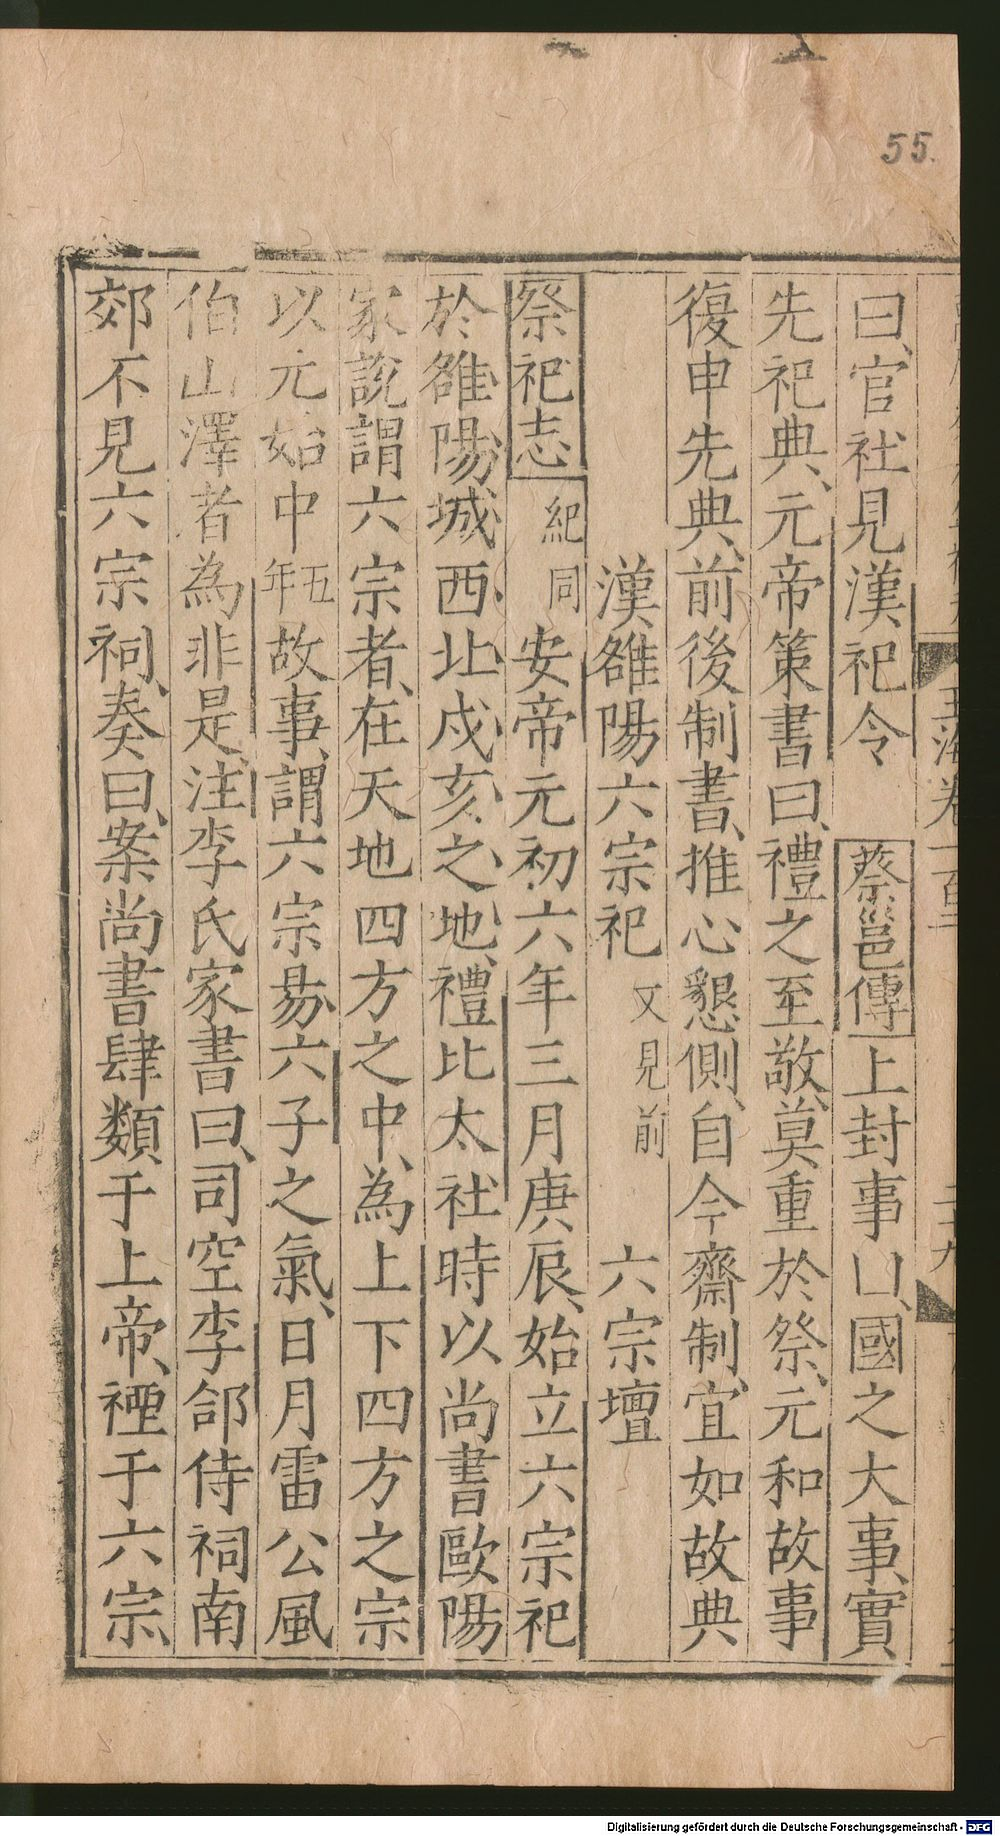 55.
玉海卷一百二
二十九
曰、官社見漢祀令 蔡邕傳上封事曰、國之大事、實
先祀典、元帝策書曰、禮之至敬、莫重於祭、元和故事
復申先典、前後制書、推心懇惻、自今齋制、宜如故典
漢雒陽六宗祀 又見前 六宗壇
祭祀志 紀同 安帝元初六年三月庚辰、始立六宗祀
於雒陽城西北戌亥之地、禮比太社時以尚書歐陽
家說謂六宗者、在天地四方之中、為上下四方之宗
以元始中五年故事、謂六宗易六子之氣、日月雷公風
伯山澤者為非是、注李氏家書曰、司空李郃侍祠南
郊不見六宗祠、奏曰、案尚書肆類于上帝、禋于六宗、
Digitalisierung gefördert durch die Deutsche Forschungsgemeinschaft - DFG